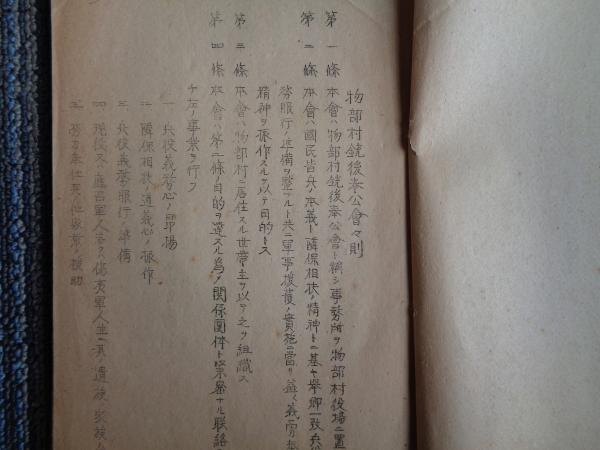 物部村銃後奉公會々則
第一條 本會ハ物部村銃後奉公會ト稱シ事務所ヲ物部村役場ニ置
第二條 本會ハ國民皆兵ノ本義ト隣保相扶ノ精神トニ基キ挙郷一致兵役
務服行ノ準備ヲ整フルト共ニ軍事援護ノ實施ニ當リ益々義勇奉
精神ヲ振作スルヲ以テ目的トス
第三條 本會ハ物部村ニ居住スル世帶主ヲ以テ之ヲ組織ス
第四條 本會ハ第二條ノ目的ヲ達スル為メ関係團体ト緊密ナル聯絡
ケ左ノ事業ヲ行フ
一 兵役義務心ノ昂揚
二 隣保相扶ノ道義心ノ振作
三 兵役義務服行ノ準備
四 現役又ハ應召軍人若クハ傷痍軍人並ニ其ノ遺族、家族
五 労力奉仕其ノ他家業ノ援助